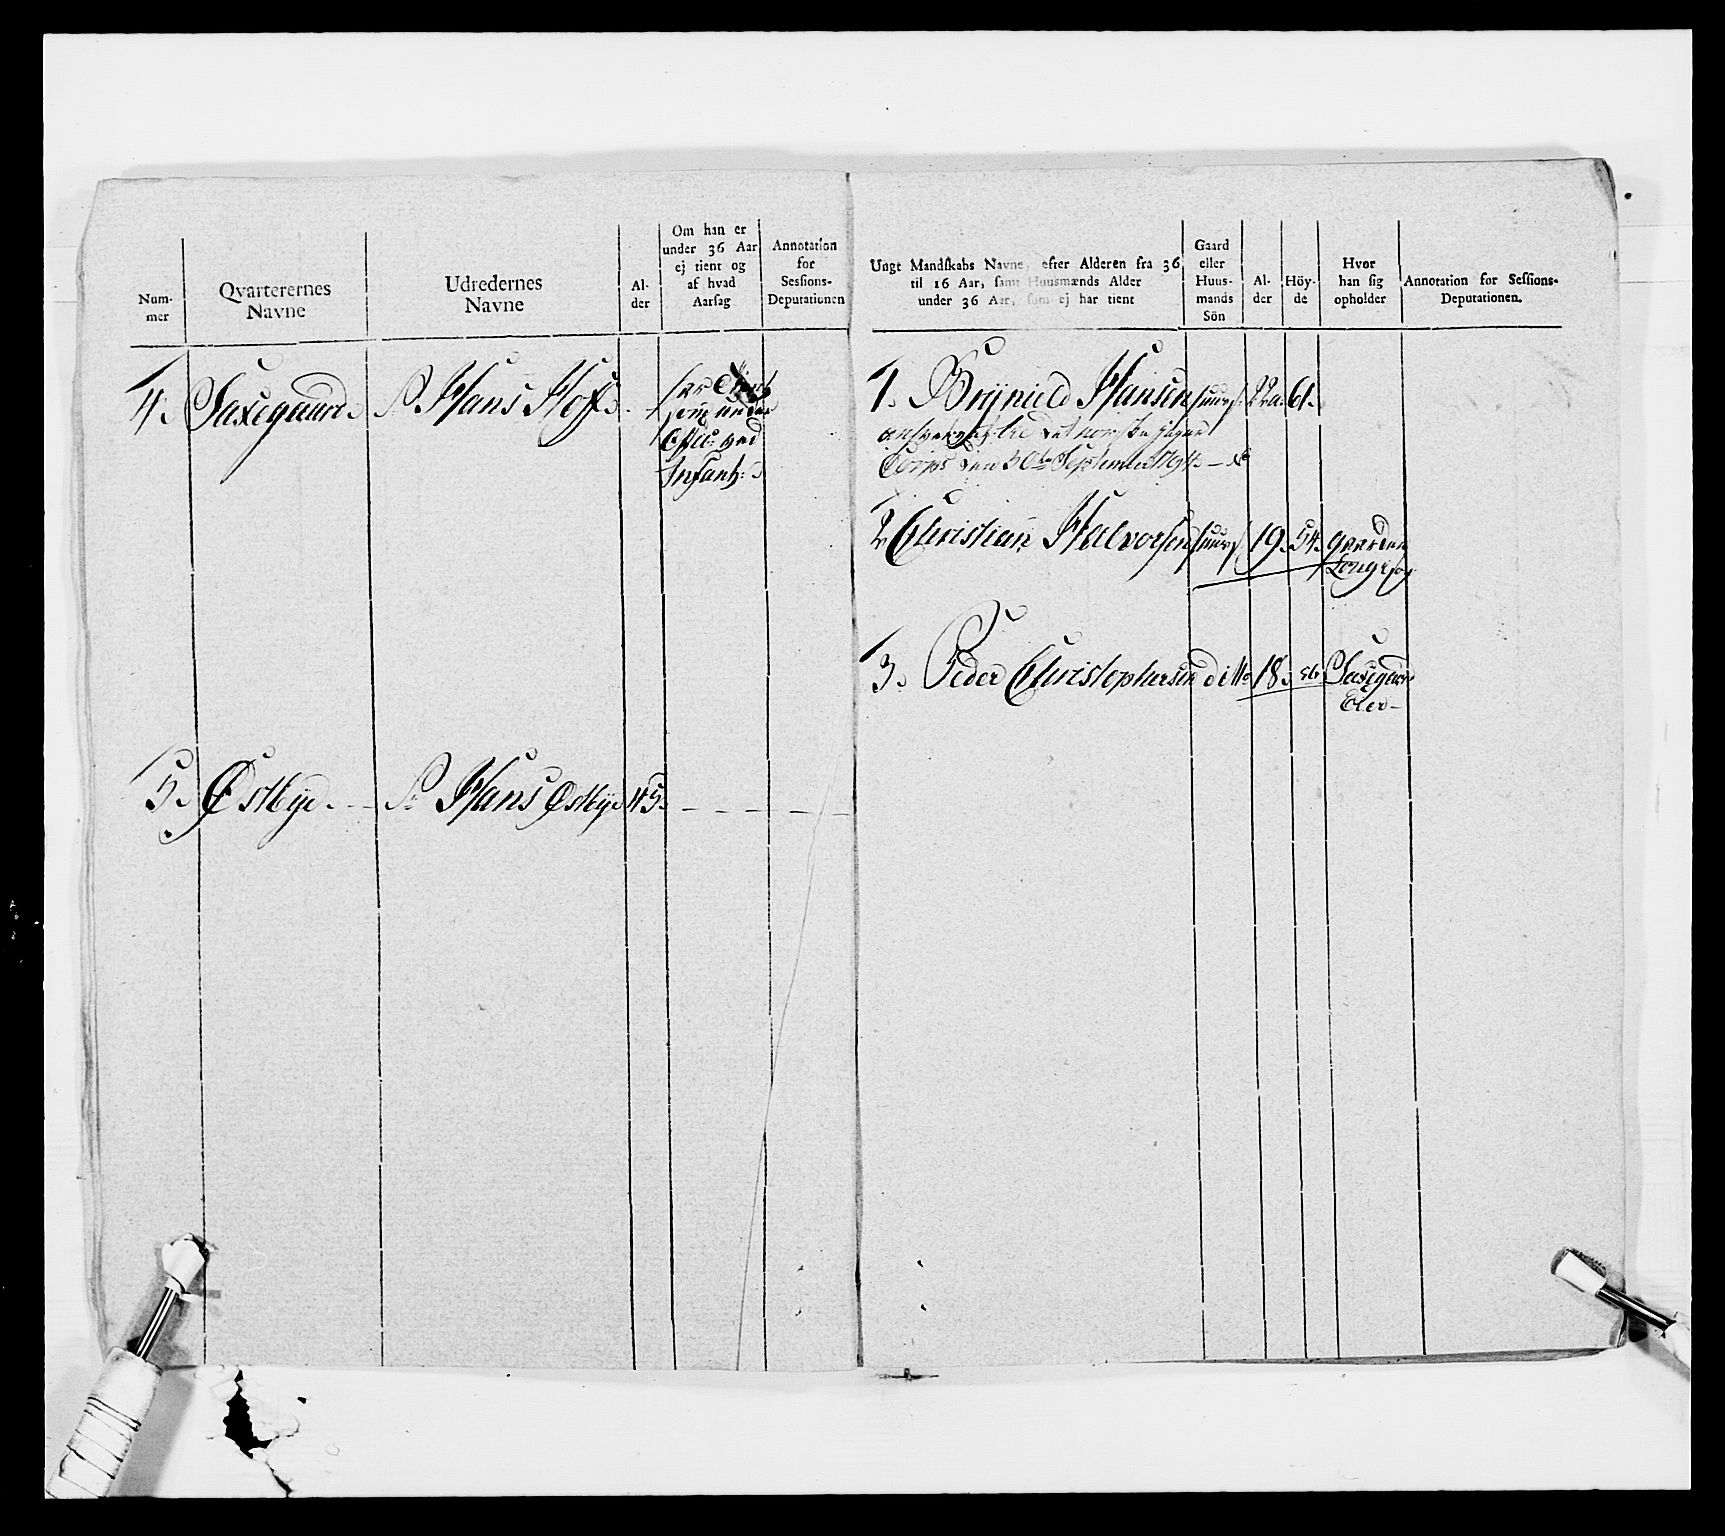 Num-
mer
Qvarterernes
Navne
Udredernes
Navne
Al-
der
Om han er
under 36 Aar
ej tient og
af hvad
Aarsag
Annotation
for
Sessions-
Deputationen
Ungt Mandskabs Navne, efter Alderen fra 36
til 16 Aar, samt Huusmænds Alder
under 36 Aar, som ej har tient
Gaard
eller
Huus-
mands
Sön
Al-
der
Höy-
de
Hvor
han sig
opholder
Annotation for Sessions-
Deputationen.
4. Saxegaard. S. Hans Hoff.
har
som under
Offic: ved
Infant:
1. Brynild Hansen huus 22 a. 61.
det norske Jæger
Corps den 30te September 1794
2 Christian Halvorsen huus 19. 54. gaarden
3. Peder Christophersen ditto 18. 56. Saxegaard
Eier
5. Østbye. S. Hans Østbye 45.